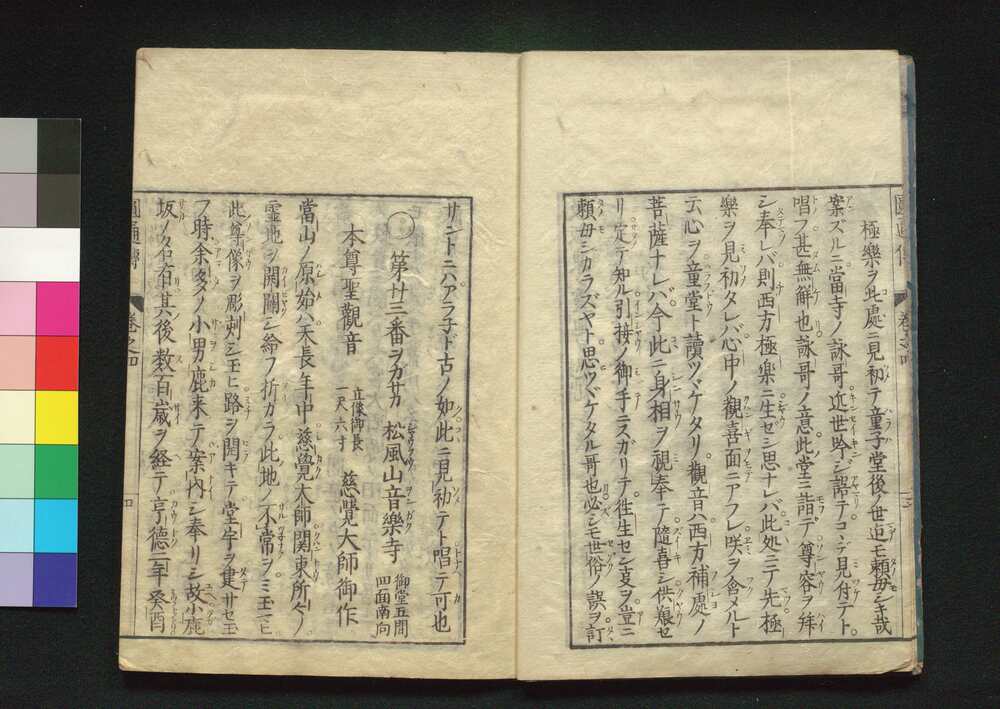 極樂ヲ此處ニ見初テ童子堂後ノ世迄モ頼母シキ哉
案ズルニ當寺ノ詠哥近世吟ジ謬テコヽデ見付テト
唱フ甚無解也詠哥ノ意此堂ニ詣テ尊容ヲ拜
シ奉レバ則西方極樂ニ生セシ思ナレバ此処ニテ先極
樂ヲ見初タレバ心中ノ觀喜面ニアフレ咲ヲ含メルト
云心ヲ童堂ト讀ツヾケタリ觀音ハ西方補處ノ
菩薩ナレバ今此ニ身相ヲ視奉テ隨喜シ供
リ定テ知ル引接ノ御手ニスガリテ往生セシ夏ヲ豈ニ
頼母シカラズヤト思ツヾケタル哥也必シモ世俗ノ誤ヲ訂
圓通傳
卷之四
サントニハアラ子ド古ノ如此ニ見初テト唱テ可也
第廿三番ヲガサカ 松風山音樂寺 御堂五間 四面南向
本尊聖觀音 立像御長 一尺六寸 慈覺大師御作
當山ノ原始ハ天長年中慈覺大師関東所々ノ
霊地ヲ開闢シ給フ折カラ此地ノ不常ヲミ玉ヒ
此尊像ヲ彫刻シ玉ヒ路ヲ開キテ堂宇ヲ建サセ玉
フ時余タノ小男鹿来テ案内シ奉リシ故小鹿
坂ノ名有其後数百歳ヲ経テ享德二年癸酉
圓通傳
卷之四
四